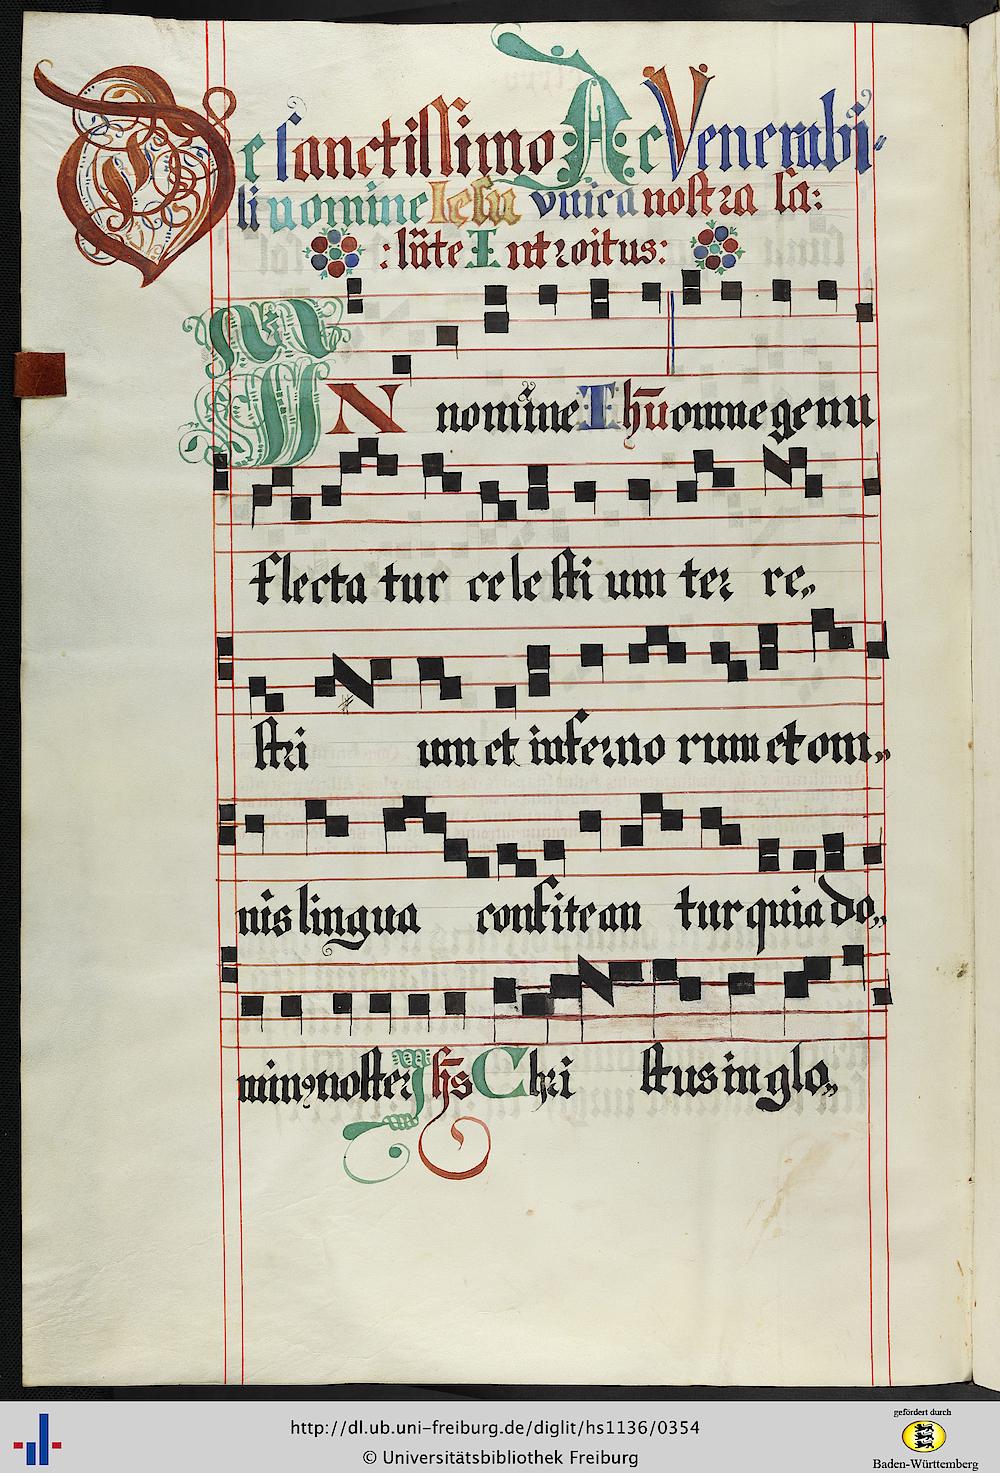 De sanctissimo Ac Venerabi-
li nomine Iesu vnica nostra sa:
: lute Introitus:
IN nomine Ihu omne genu
flecta tur ce le sti um ter re„
stri um et inferno rum et om„
nis lingua confitean tur quia do„
minꝰ noster Jhs Chri stus in glo„
http://dl.ub.uni-freiburg.de/diglit/hs1136/0354
© Universitätsbibliothek Freiburg
gefördert durch
Baden-Württemberg